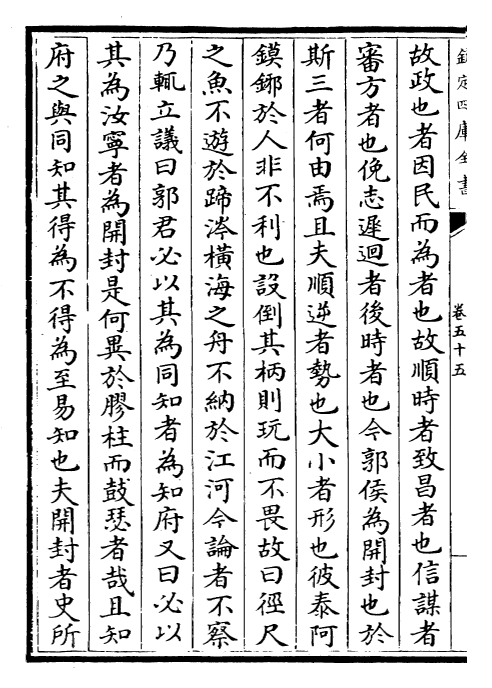 欽定四庫全書
卷五十五
故政也者因民而為者也故順時者致昌者也信謀者
審方者也俛志遲迴者後時者也今郭侯為開封也於
斯三者何由焉且夫順逆者勢也大小者形也彼泰阿
鏌鋣於人非不利也設倒其柄則玩而不畏故曰徑尺
之魚不遊於蹄涔橫海之舟不納於江河今論者不察
乃輒立議曰郭君必以其為同知者為知府又曰必以
其為汝寧者為開封是何異於膠柱而鼓瑟者哉且知
府之與同知其得為不得為至易知也夫開封者史所